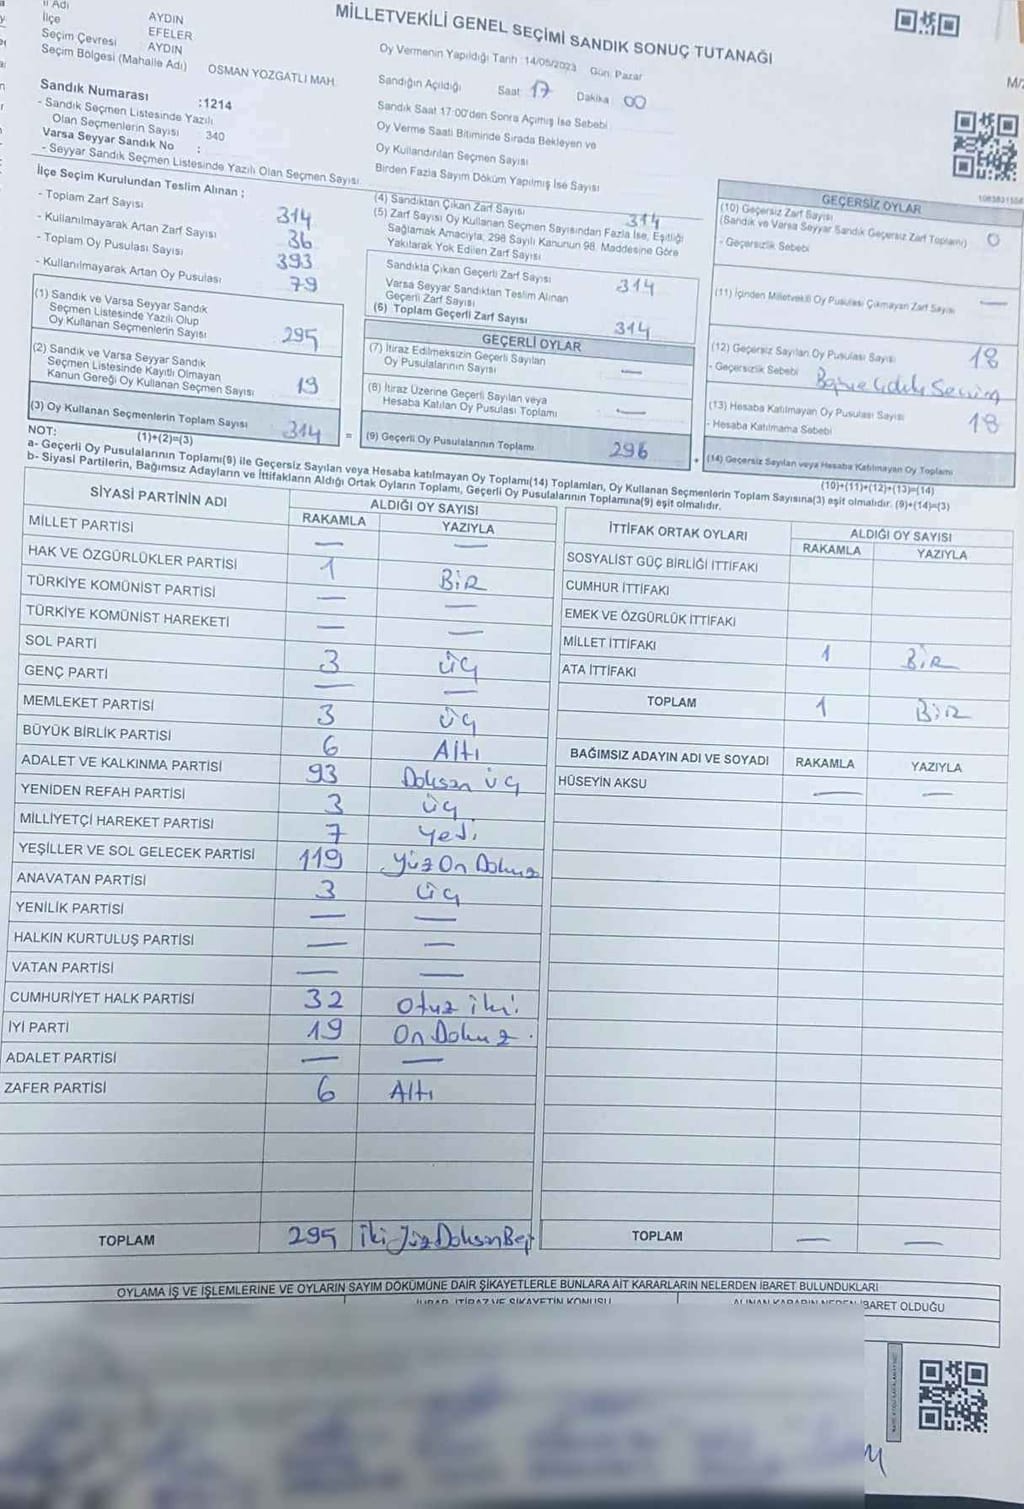 MİLLETVEKİLİ GENEL SEÇİMİ SANDIK SONUÇ TUTANAĞI
İl Adı
İlçe
Seçim Çevresi
Seçim Bölgesi (Mahalle Adı)
AYDIN
EFELER
AYDIN
OSMAN YOZGATLI MAH.
Oy Vermenin Yapıldığı Tarih :14/05/2023 Gün: Pazar
Sandık Numarası :1214
- Sandık Seçmen Listesinde Yazılı
Olan Seçmenlerin Sayısı 340
Varsa Seyyar Sandık No :
- Seyyar Sandık Seçmen Listesinde Yazılı Olan Seçmen Sayısı
Sandığın Açıldığı Saat 17 Dakika 00
Sandık Saat 17:00'den Sonra Açılmış İse Sebebi
Oy Verme Saati Bitiminde Sırada Bekleyen ve
Oy Kullandırılan Seçmen Sayısı
Birden Fazla Sayım Döküm Yapılmış İse Sayısı
M/2
İlçe Seçim Kurulundan Teslim Alınan ;
- Toplam Zarf Sayısı 314
- Kullanılmayarak Artan Zarf Sayısı 36
- Toplam Oy Pusulası Sayısı 393
- Kullanılmayarak Artan Oy Pusulası 79
(1) Sandık ve Varsa Seyyar Sandık
Seçmen Listesinde Yazılı Olup
Oy Kullanan Seçmenlerin Sayısı 295
(2) Sandık ve Varsa Seyyar Sandık
Seçmen Listesinde Kayıtlı Olmayan
Kanun Gereği Oy Kullanan Seçmen Sayısı 19
(3) Oy Kullanan Seçmenlerin Toplam Sayısı 314
(1)+(2)=(3)
(4) Sandıktan Çıkan Zarf Sayısı 314
(5) Zarf Sayısı Oy Kullanan Seçmen Sayısından Fazla İse, Eşitliği
Sağlamak Amacıyla, 298 Sayılı Kanunun 98. Maddesine Göre
Yakılarak Yok Edilen Zarf Sayısı
Sandıkta Çıkan Geçerli Zarf Sayısı 314
Varsa Seyyar Sandıktan Teslim Alınan
Geçerli Zarf Sayısı
(6) Toplam Geçerli Zarf Sayısı 314
GEÇERLİ OYLAR
(7) İtiraz Edilmeksizin Geçerli Sayılan
Oy Pusulalarının Sayısı —
(8) İtiraz Üzerine Geçerli Sayılan veya
Hesaba Katılan Oy Pusulası Toplamı —
= (9) Geçerli Oy Pusulalarının Toplamı 296
GEÇERSİZ OYLAR
(10) Geçersiz Zarf Sayısı
(Sandık ve Varsa Seyyar Sandık Geçersiz Zarf Toplamı) 0
- Geçersizlik Sebebi
(11) İçinden Milletvekili Oy Pusulası Çıkmayan Zarf Sayısı —
(12) Geçersiz Sayılan Oy Pusulası Sayısı 18
- Geçersizlik Sebebi
(13) Hesaba Katılmayan Oy Pusulası Sayısı 18
- Hesaba Katılmama Sebebi
+ (14) Geçersiz Sayılan veya Hesaba Katılmayan Oy Toplamı
(10)+(11)+(12)+(13)=(14)
NOT:
a- Geçerli Oy Pusulalarının Toplamı(9) ile Geçersiz Sayılan veya Hesaba katılmayan Oy Toplamı(14) Toplamları, Oy Kullanan Seçmenlerin Toplam Sayısına(3) eşit olmalıdır. (9)+(14)=(3)
b- Siyasi Partilerin, Bağımsız Adayların ve İttifakların Aldığı Ortak Oyların Toplamı, Geçerli Oy Pusulalarının Toplamına(9) eşit olmalıdır.
SİYASİ PARTİNİN ADI ALDIĞI OY SAYISI
RAKAMLA YAZIYLA
MİLLET PARTİSİ — —
HAK VE ÖZGÜRLÜKLER PARTİSİ 1 BİR
TÜRKİYE KOMÜNİST PARTİSİ — —
TÜRKİYE KOMÜNİST HAREKETİ — —
SOL PARTİ 3 üç
GENÇ PARTİ — —
MEMLEKET PARTİSİ 3 üç
BÜYÜK BİRLİK PARTİSİ 6 Altı
ADALET VE KALKINMA PARTİSİ 93 Doksan üç
YENİDEN REFAH PARTİSİ 3 üç
MİLLİYETÇİ HAREKET PARTİSİ 7 yedi
YEŞİLLER VE SOL GELECEK PARTİSİ 119 Yüz On Dokuz
ANAVATAN PARTİSİ 3 üç
YENİLİK PARTİSİ — —
HALKIN KURTULUŞ PARTİSİ — —
VATAN PARTİSİ — —
CUMHURİYET HALK PARTİSİ 32 otuz iki
İYİ PARTİ 19 On Dokuz
ADALET PARTİSİ — —
ZAFER PARTİSİ 6 Altı
TOPLAM 295 İki Yüz Doksan Beş
İTTİFAK ORTAK OYLARI ALDIĞI OY SAYISI
RAKAMLA YAZIYLA
SOSYALİST GÜÇ BİRLİĞİ İTTİFAKI
CUMHUR İTTİFAKI
EMEK VE ÖZGÜRLÜK İTTİFAKI
MİLLET İTTİFAKI 1 BİR
ATA İTTİFAKI
TOPLAM 1 BİR
BAĞIMSIZ ADAYIN ADI VE SOYADI RAKAMLA YAZIYLA
HÜSEYİN AKSU — —
TOPLAM — —
OYLAMA İŞ VE İŞLEMLERİNE VE OYLARIN SAYIM DÖKÜMÜNE DAİR ŞİKAYETLERLE BUNLARA AİT KARARLARIN NELERDEN İBARET BULUNDUKLARI
İTİRAZ VE ŞİKAYETİN KONUSU
ALINAN KARARIN NEDEN İBARET OLDUĞU